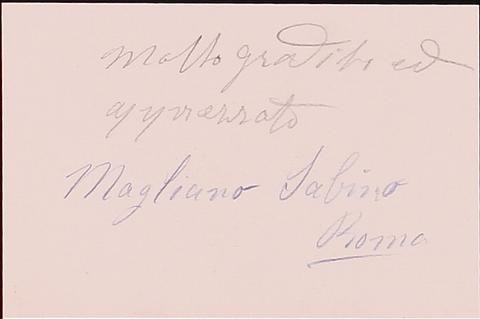 Molto gradito ed
apprezzato
Magliano Sabino
Roma